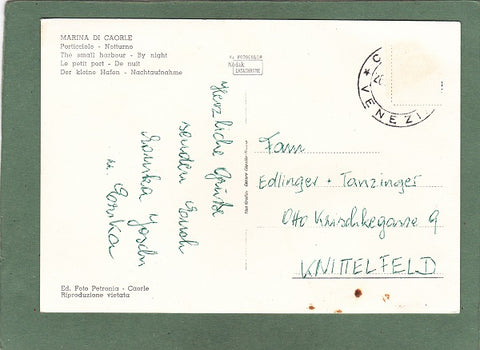 MARINA DI CAORLE
Porticciolo - Notturno
The small harbour - By night
Le petit port - De nuit
Der kleine Hafen - Nachtaufnahme
Kodak
EKTACHROME
VENEZI
Herzliche Grüße
senden Euch
u. Erika
Fam
Edlinger + Tanzinger
Otto Kruschkegasse 9
KNITTELFELD
Ed. Foto Petronia - Caorle
Riproduzione vietata